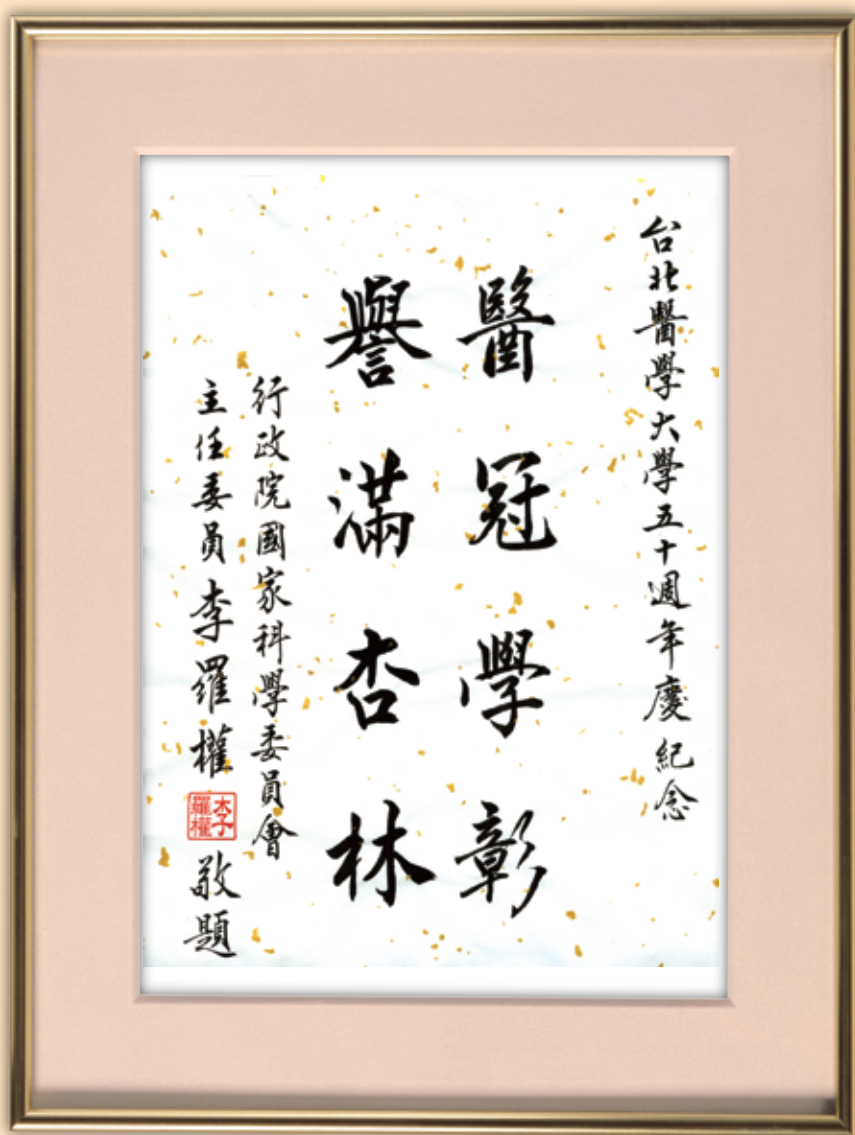 台北醫學大學五十週年慶紀念
醫冠學彰
譽滿杏林
行政院國家科學委員會
主任委員李羅權
李羅權
敬題